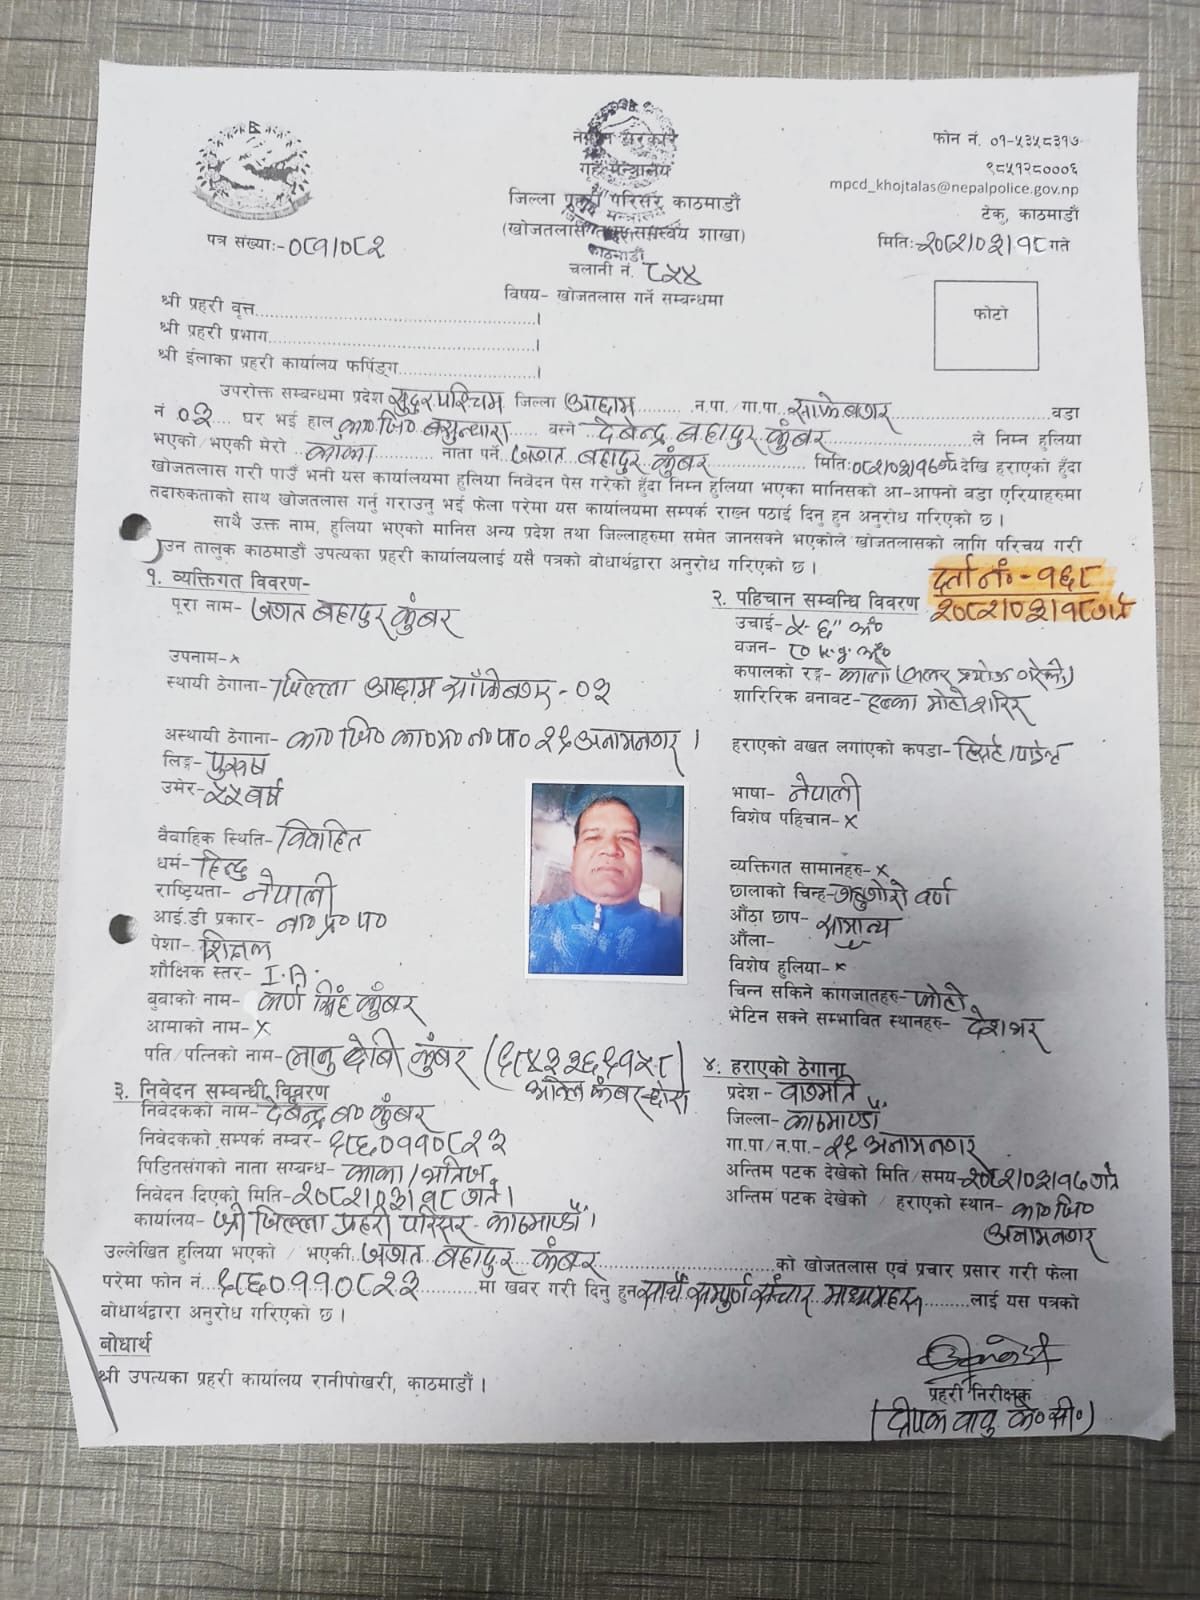 नेपाल सरकार
गृह मन्त्रालय
जिल्ला प्रहरी परिसर काठमाडौं
(खोजतलास समन्वय शाखा)
काठमाडौं
फोन नं. ०१-५३५८३१७
९८५१२८०००६
mpcd_khojtalas@nepalpolice.gov.np
टेकु, काठमाडौं
पत्र संख्याः-०८१/०८२
मितिः-२०८२/०३/१८ गते
चलानी नं. ८५४
विषय- खोजतलास गर्ने सम्बन्धमा
श्री प्रहरी वृत्त
श्री प्रहरी प्रभाग
श्री ईलाका प्रहरी कार्यालय फर्पिङ्ग
फोटो
उपरोक्त सम्बन्धमा प्रदेश सुदुरपश्चिम जिल्ला अछाम न.पा./गा.पा. साफेबगर वडा
नं ०३ घर भई हाल का०जि० बसुन्धारा बस्ने देबेन्द्र बहादुर कुंबर ले निम्न हुलिया
भएको/भएकी मेरो काका नाता पर्ने जगत बहादुर कुंबर मितिः०८२/०३/१७ गते देखि हराएको हुँदा
खोजतलास गरी पाउँ भनी यस कार्यालयमा हुलिया निवेदन पेस गरेको हुँदा निम्न हुलिया भएका मानिसको आ-आफ्नो वडा एरियाहरुमा
तदारुकताको साथ खोजतलास गर्नु गराउनु भई फेला परेमा यस कार्यालयमा सम्पर्क राख्न पठाई दिनु हुन अनुरोध गरिएको छ।
साथै उक्त नाम, हुलिया भएको मानिस अन्य प्रदेश तथा जिल्लाहरुमा समेत जानसक्ने भएकोले खोजतलासको लागि परिचय गरी
उन तालुक काठमाडौं उपत्यका प्रहरी कार्यालयलाई यसै पत्रको बोधार्थद्वारा अनुरोध गरिएको छ।
दर्ता नं०-१६८
२०८२/०३/१८ गते
१. व्यक्तिगत विवरण-
पूरा नाम- जगत बहादुर कुंबर
उपनाम-x
स्थायी ठेगाना- जिल्ला अछाम साँफेबगर-०३
अस्थायी ठेगाना- का०जि० का०म०न०पा० २९ अनामनगर।
लिङ्ग- पुरुष
उमेर- ५५ बर्ष
वैवाहिक स्थिति- विवाहित
धर्म- हिन्दु
राष्ट्रियता- नेपाली
आई.डी प्रकार- ना०प्र०प०
पेशा- शिक्षक
शैक्षिक स्तर- I.A.
बुवाको नाम- कर्ण सिंह कुंबर
आमाको नाम- x
पति/पत्निको नाम- जानु देबी कुंबर (९८४३३६९१५८)
२. पहिचान सम्बन्धि विवरण
उचाई- ५.६" अं०
वजन- ८० k.g. अं०
कपालको रङ्ग- कालो (कलर प्रयोग गरेको)
शारिरिक बनावट- हल्का मोटो शरिर
हराएको बखत लगाएको कपडा- टिसर्ट/पाईन्ट
भाषा- नेपाली
विशेष पहिचान- x
व्यक्तिगत सामानहरु- x
छालाको चिन्ह- गहुगोरो वर्ण
औंठा छाप- सामान्य
औंला-
विशेष हुलिया- x
चिन्न सकिने कागजातहरु- फोटो
भेटिन सक्ने सम्भावित स्थानहरु- देशभर
३. निवेदन सम्बन्धी विवरण
निवेदकको नाम- देबेन्द्र ब० कुंबर
निवेदकको सम्पर्क नम्बर- ९८६०११०८२३
पिडितसंगको नाता सम्बन्ध- काका/भतिज
निवेदन दिएको मिति- २०८२/०३/१८ गते।
कार्यालय- श्री जिल्ला प्रहरी परिसर काठमाण्डौं।
४. हराएको ठेगाना
प्रदेश- वागमति
जिल्ला- काठमाण्डौं
गा.पा/न.पा.- २९ अनामनगर
अन्तिम पटक देखेको मिति/समय- २०८२/०३/१७ गते
अन्तिम पटक देखेको / हराएको स्थान- का०जि०
अनामनगर
उल्लेखित हुलिया भएको / भएकी जगत बहादुर कुंबर को खोजतलास एवं प्रचार प्रसार गरी फेला
परेमा फोन नं. ९८६०११०८२३ मा खबर गरी दिनु हुन साथै सम्पुर्ण संचार माध्यमहरु लाई यस पत्रको
बोधार्थद्वारा अनुरोध गरिएको छ।
बोधार्थ
श्री उपत्यका प्रहरी कार्यालय रानीपोखरी, काठमाडौं।
प्रहरी निरीक्षक
(दीपक बाबु के०सी०)